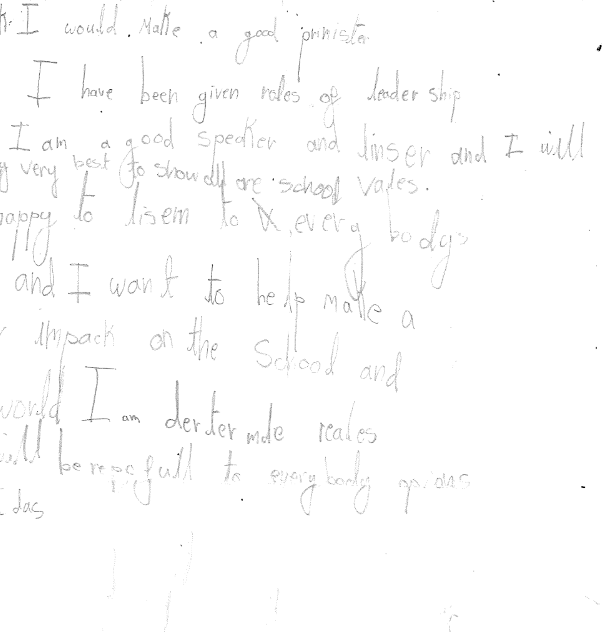 k I would Make a good prinister
I have been given roles of leader ship
I am a good speaker and linser and I will
y very best to show all are school vales.
happy to lisem to every bodys
and I want to help make a
r impack on the School and
world I am derter mde reales
will be respcfull to every body opions
I das